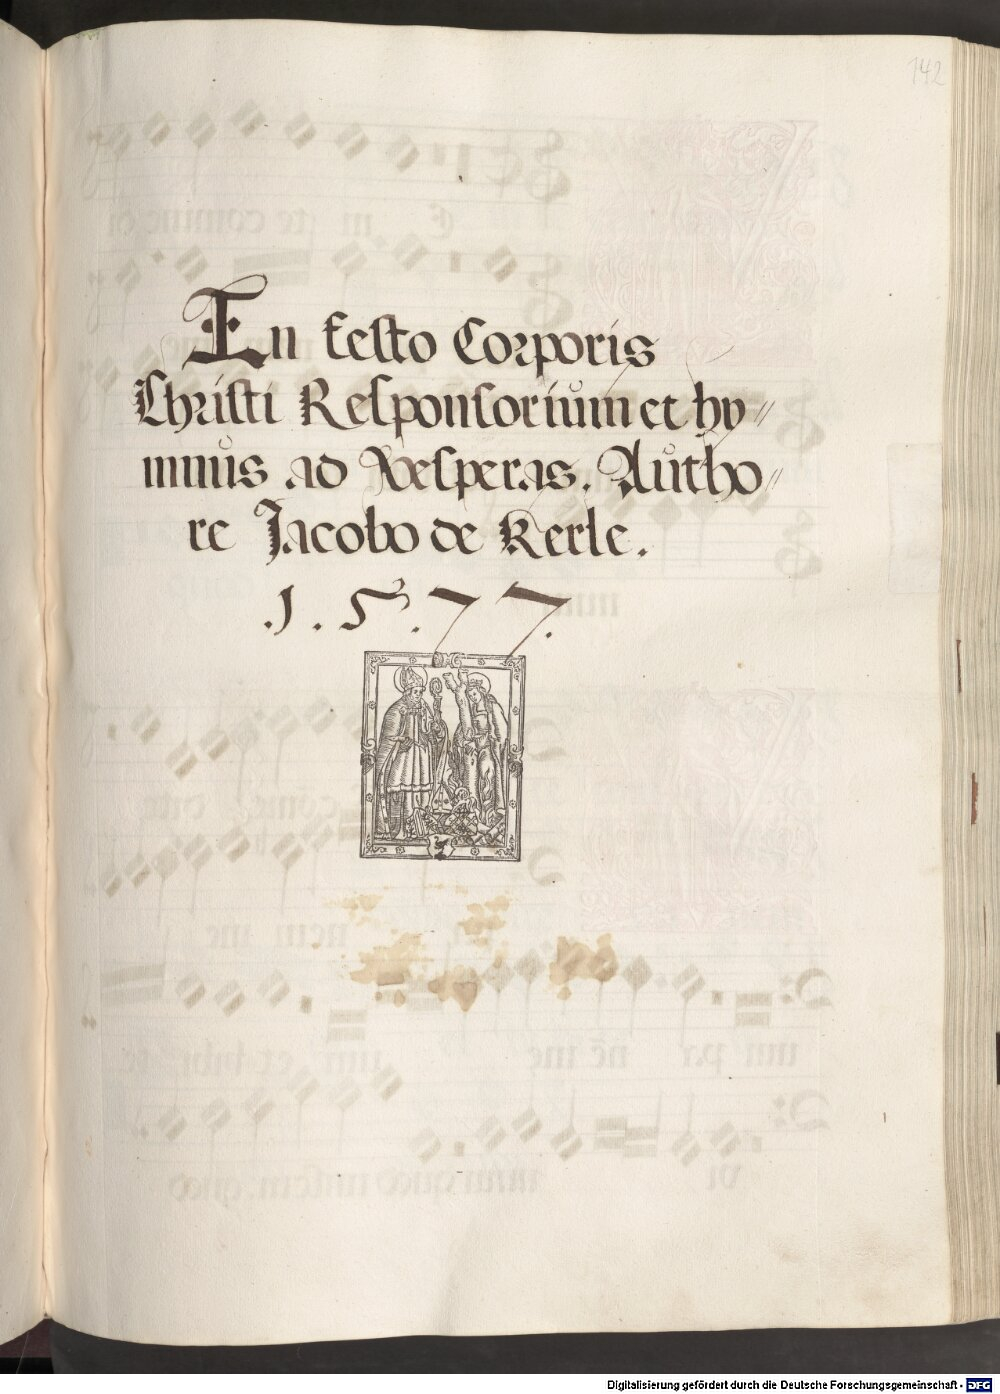 142
In festo Corporis
Christi Responsorium et hy//
mnus ad Vesperas. Autho//
re Jacobo de Kerle.
.1.5.7.7.
Digitalisierung gefördert durch die Deutsche Forschungsgemeinschaft - DFG